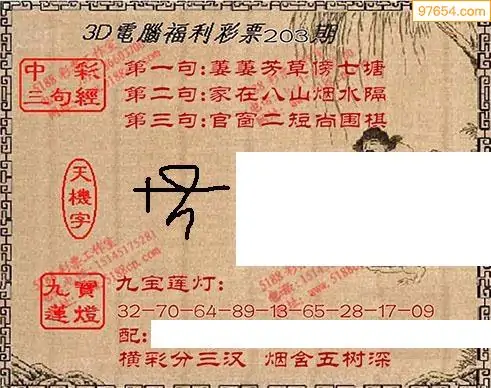 97654.com
3D電腦福利彩票203期
中彩
三句經
第一句:萋萋芳草傍七塘
第二句:家在八山烟水隔
第三句:官窗二短尚围棋
天機字
九寶
蓮燈
九宝莲灯:
32-70-64-89-13-65-28-17-09
配:
横彩分三汉 烟含五树深